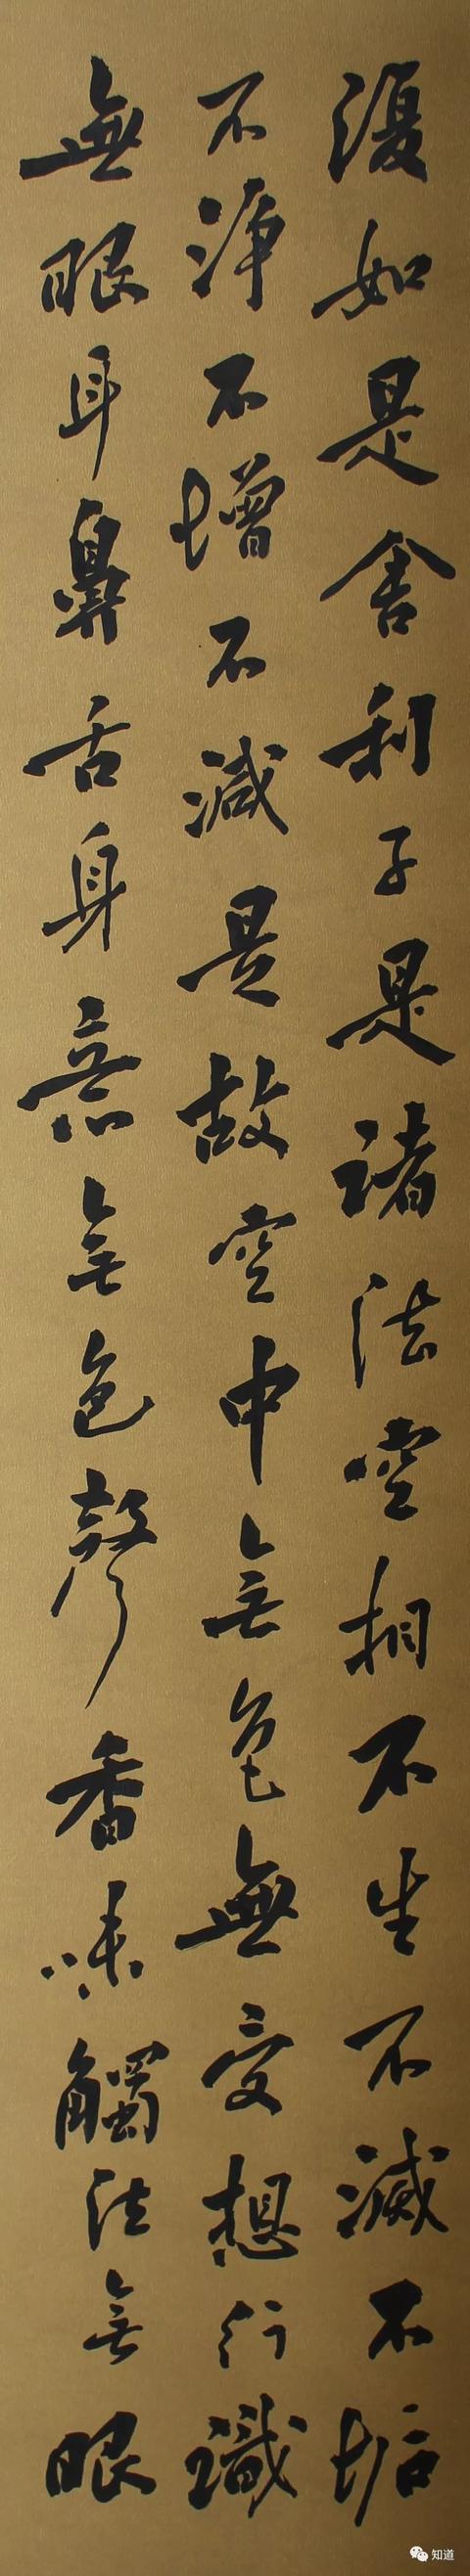 復如是舍利子是諸法空相不生不滅不垢
不淨不增不減是故空中無色無受想行識
無眼耳鼻舌身意無色聲香味觸法無眼
知道